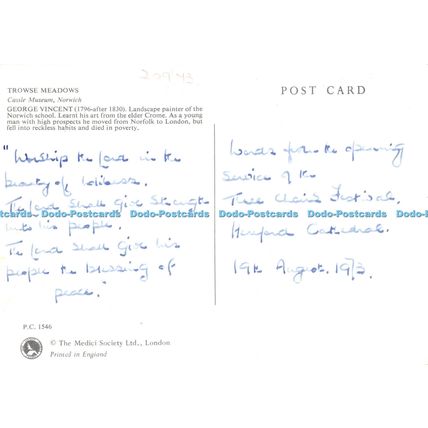 209 43
TROWSE MEADOWS
Castle Museum, Norwich
GEORGE VINCENT (1796-after 1830). Landscape painter of the
Norwich school. Learnt his art from the elder Crome. As a young
man with high prospects he moved from Norfolk to London, but
fell into reckless habits and died in poverty.
"Worship the Lord in the
beauty of holiness.
The Lord shall give strength
unto his people.
The Lord shall give his
people the blessing of
peace."
P.C. 1546
© The Medici Society Ltd., London
Printed in England
POST CARD
Words from the opening
Service of the
Three Choirs Festival.
Hereford Cathedral.
19th August. 1973.
Dodo-Postcards Dodo-Postcards Dodo-Postcards Dodo-Postcards